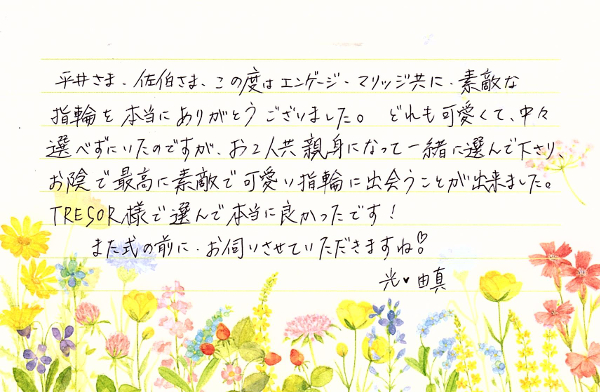 平井さま、佐伯さま、この度はエンゲージ・マリッジ共に、素敵な
指輪を本当にありがとうございました。どれも可愛くて、中々
選べずにいたのですが、お2人共親身になって一緒に選んで下さり、
お陰で最高に素敵で可愛い指輪に出会うことが出来ました。
TRESOR様で選んで本当に良かったです！
また式の前に、お伺いさせていただきますね♡
光♥由真